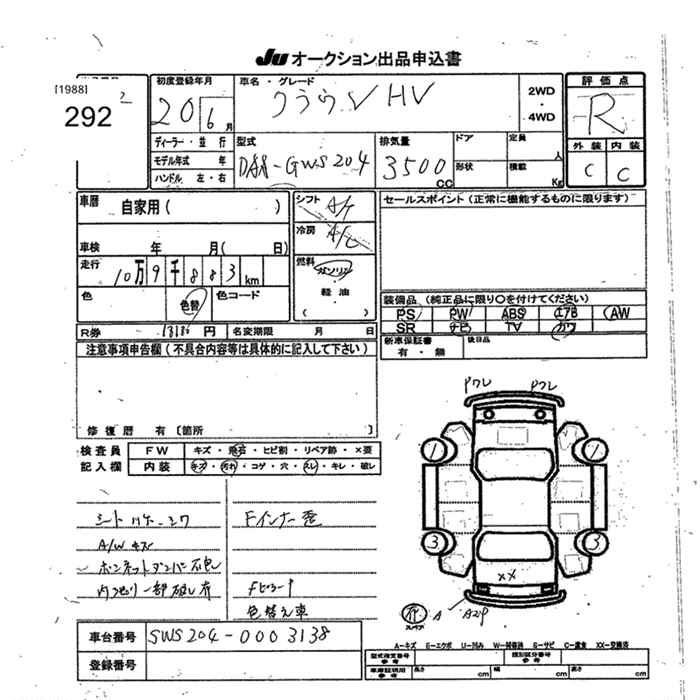 JU オークション出品申込書
[1988]
292
初度登録年月
20 6 月
車名・グレード
クラウン HV
2WD
・
4WD
評価点
R
外装 内装
C C
ディーラー・並行
モデル年式 年
ハンドル 左・右
型式
DAA-GWS204
排気量
3500 CC
ドア
形状
定員 人
積載 Kg
車歴 自家用( )
シフト A/T
冷房 A/C
セールスポイント (正常に機能するものに限ります)
車検 年 月( 日)
走行 10万9千883km
燃料 ガソリン
・
軽油
( )
色 色替 色コード
装備品 (純正品に限り○を付けてください)
PS PW ABS エアB AW
SR ナビ TV カワ
R券 円 名変期限 月 日
新車保証書
有・無
後日品
注意事項申告欄(不具合内容等は具体的に記入して下さい)
修復歴 有〔箇所 〕
検査員
記入欄
FW キズ・飛石・ヒビ割・リペア跡・×要
内装 キズ・汚れ・コゲ・穴・スレ・キレ・破レ
A/Wキズ
色替え車
Pワレ Pワレ
1 1
3 3
××
スペア
A A2P
車台番号 GWS204-0003138
登録番号
A-キズ E-エクボ U-凹み W-補修跡 S-サビ C-腐食 XX-交換済
型式指定番号
参考
類別区分番号
参考
車庫証明用
参考
長さ cm 幅 cm 高さ cm